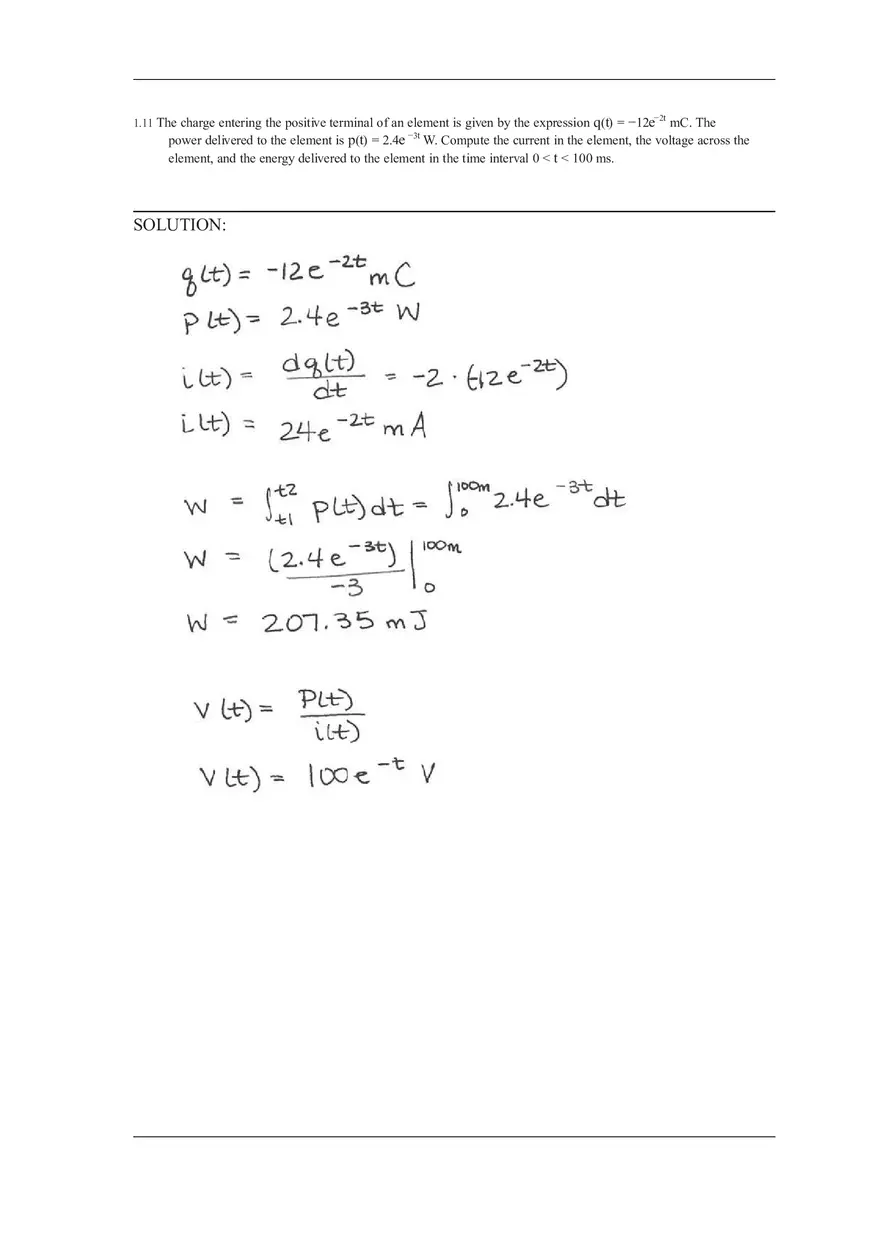 1.11 The charge entering the positive terminal of an element is given by the expression q(t) = −12e⁻²ᵗ mC. The
power delivered to the element is p(t) = 2.4e ⁻³ᵗ W. Compute the current in the element, the voltage across the
element, and the energy delivered to the element in the time interval 0 < t < 100 ms.
SOLUTION:
q(t) = -12e^-2t mC
P(t) = 2.4e^-3t W
i(t) = dq(t)/dt = -2 · (-12e^-2t)
i(t) = 24e^-2t mA
W = ∫_t1^t2 P(t)dt = ∫_0^100m 2.4e^-3t dt
W = (2.4e^-3t)/-3 |_0^100m
W = 207.35 mJ
V(t) = P(t)/i(t)
V(t) = 100e^-t V